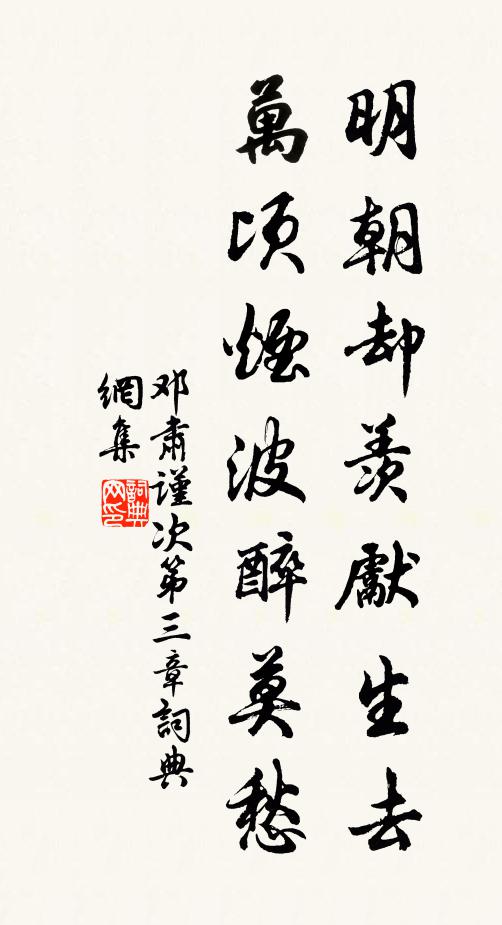 明朝却羨獻生去
萬頃煙波醉莫愁
邓肅謹次第三章詞典
網集
詞典
网印